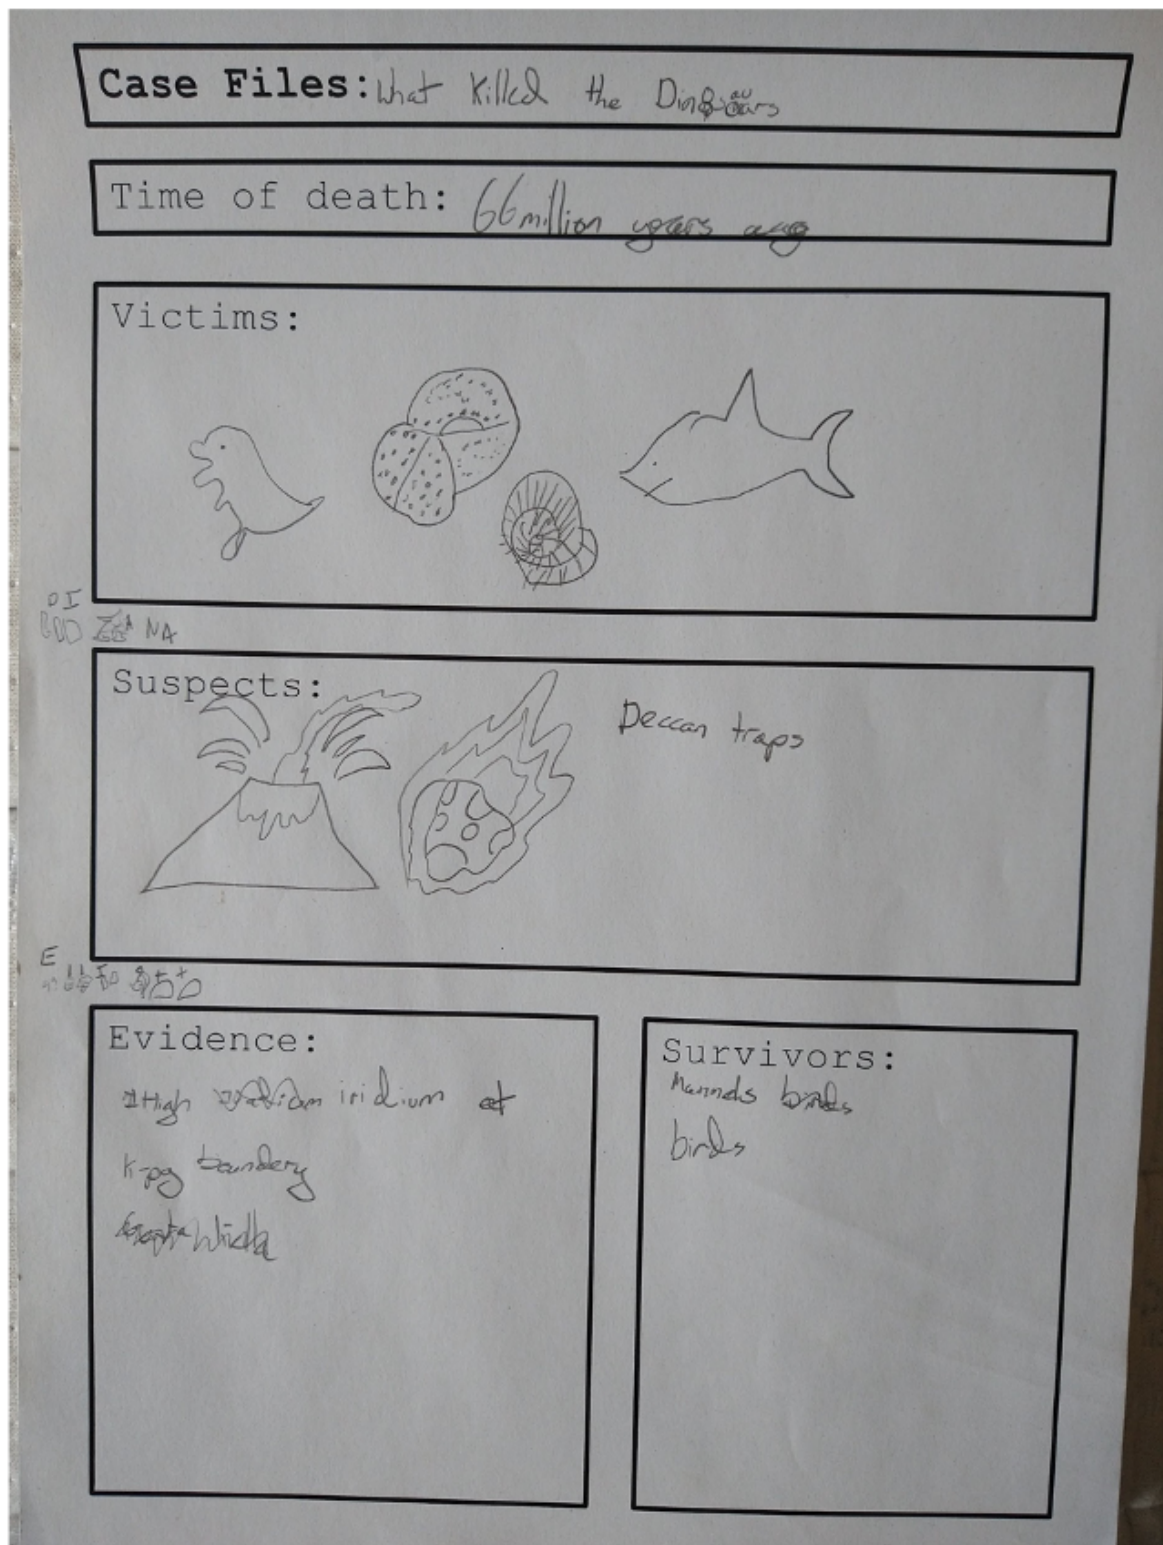 Case Files: What Killed the Dinosaurs
Time of death: 66 million years ago
Victims:
Suspects:
Deccan traps
Evidence:
High iridium at
K-pg boundery
Survivors:
birds
birds